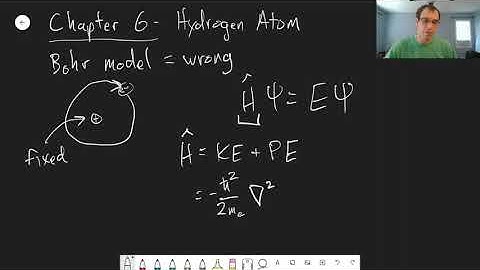 Chapter 6 - Hydrogen Atom
Bohr model = wrong
fixed
+
Ĥ Ψ = E Ψ
Ĥ = KE + PE
= -ħ²/2mₑ ∇²